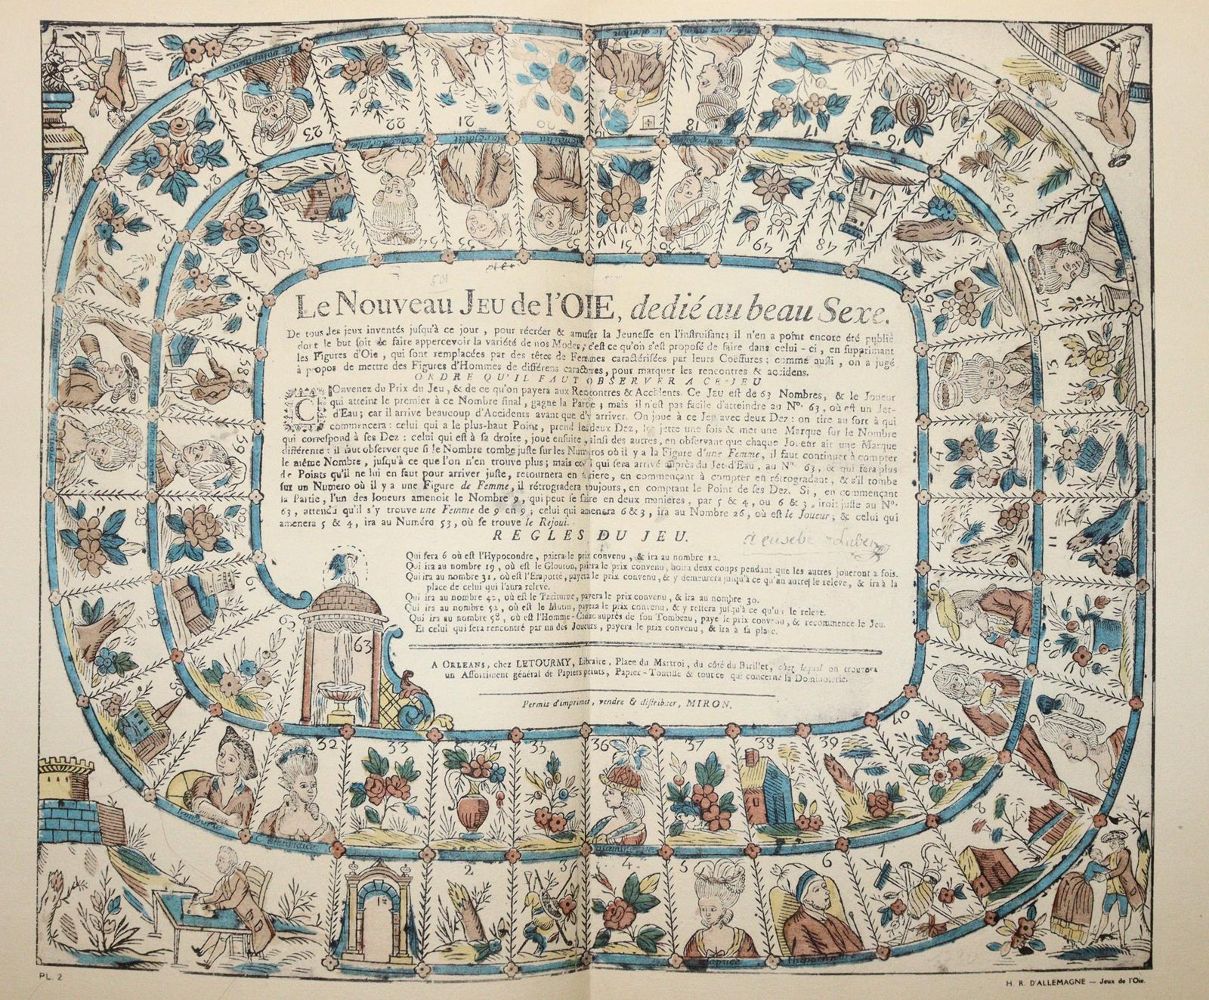 Le Nouveau Jeu de l'OIE, dedié au beau Sexe.
De tous les jeux inventés jusqu'à ce jour, pour récréer & amuser la Jeunesse en l'instruisant; il n'en a point encore été publié
dont le but soit de faire appercevoir la variété de nos Modes; c'est ce qu'on s'est proposé de faire dans celui-ci, en supprimant
les Figures d'Oie, qui sont remplacées par des têtes de Femmes caractérisées par leurs Coëffures: comme aussi, on a jugé
à propos de mettre des Figures d'Hommes de différens caractères, pour marquer les rencontres & accidens.
ORDRE QU'IL FAUT OBSERVER A CE JEU
Convenez du Prix du Jeu, & de ce qu'on payera aux Rencontres & Accidents. Ce Jeu est de 63 Nombres, & le Joueur
qui atteint le premier à ce Nombre final, gagne la Partie; mais il n'est pas facile d'atteindre au N°. 63, où est un Jet-
d'Eau; car il arrive beaucoup d'Accidents avant que d'y arriver. On joue à ce Jeu avec deux Dez: on tire au sort à qui
commencera: celui qui a le plus-haut Point, prend les deux Dez, les jette une fois & met une Marque sur le Nombre
qui correspond à ses Dez: celui qui est à sa droite, joue ensuite, ainsi des autres, en observant que chaque Joueur ait une Marque
différente: il faut observer que si le Nombre tombe juste sur les Numéros où il y a la Figure d'une Femme, il faut continuer à compter
le même Nombre, jusqu'à ce que l'on n'en trouve plus; mais celui qui sera arrivé auprès du Jet-d'Eau, au N°. 63, & qui fera plus
de Points qu'il ne lui en faut pour arriver juste, retournera en arriere, en commençant à compter en rétrogradant, & s'il tombe
sur un Numero où il y a une Figure de Femme, il rétrogradera toujours, en comptant le Point de ses Dez. Si, en commençant
la Partie, l'un des Joueurs amenoit le Nombre 9, qui peut se faire en deux manières, par 5 & 4, ou 6 & 3, iroit juste au N°.
63, attendu qu'il s'y trouve une Femme de 9 en 9; celui qui amenera 6 & 3, ira au Nombre 26, où est le Joueur; & celui qui
amenera 5 & 4, ira au Numéro 53, où se trouve le Rejoui.
REGLES DU JEU.
Qui fera 6 où est l'Hypocondre, paiera le prix convenu, & ira au nombre 12.
Qui ira au nombre 19, où est le Glouton, paiera le prix convenu, boira deux coups pendant que les autres joueront 2 fois.
Qui ira au nombre 31, où est l'Emporté, payera le prix convenu, & y demeurera jusqu'à ce qu'un autre le releve, & ira à la
place de celui qui l'aura relevé.
Qui ira au nombre 42, où est le Taciturne, payera le prix convenu, & ira au nombre 30.
Qui ira au nombre 52, où est le Mutin, payera le prix convenu, & y restera jusqu'à ce qu'on le releve.
Qui ira au nombre 58, où est l'Homme auprès de son Tombeau, paye le prix convenu, & recommence le Jeu.
Et celui qui sera rencontré par un des Joueurs, payera le prix convenu, & ira à sa place.
A ORLEANS, chez LETOURMY, Libraire, Place du Martroi, du côté du Barillet, chez lequel on trouvera
un Assortiment général de Papiers peints, Papier-Tontisse & tout ce qui concerne la Dominoterie.
Permis d'imprimer, vendre & distribuer, MIRON.
63
32 33 34 35 36 37 38 39 40
1 2 3 4 5 6
11
17
18
20
21
22
23
48
49
50
55
58
PL. 2
H. R. D'ALLEMAGNE — Jeux de l'Oie.